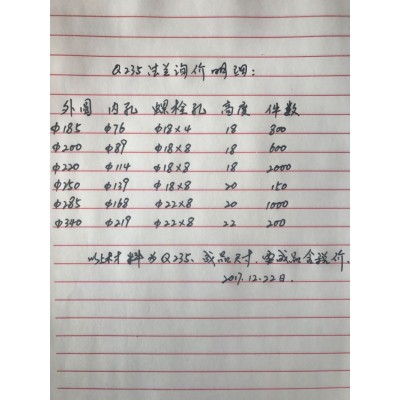 Q235法兰询价明细:
外圆 内孔 螺栓孔 高度 件数
Φ185 Φ76 Φ18×4 18 800
Φ200 Φ89 Φ18×8 18 600
Φ220 Φ114 Φ18×8 18 2000
Φ250 Φ139 Φ18×8 20 150
Φ285 Φ168 Φ22×8 20 1000
Φ340 Φ219 Φ22×8 22 200
以上材料为Q235、成品尺寸,要成品含税价。
2017.12.22日.